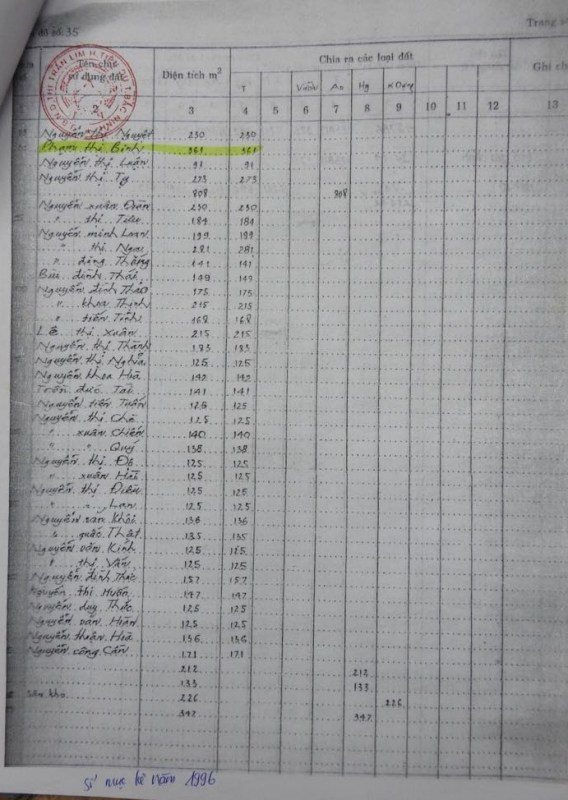 đồ số: 35
Trang s
Tên chủ sử dụng đất
Diện tích m²
Chia ra các loại đất
Ghi ch
T Vườn Ao Hg K Quy
2 3 4 5 6 7 8 9 10 11 12 13
Nguyễn thị Nguyệt 230 230
Phạm thị Bính 361 361
Nguyễn thị Luận 91 91
Nguyễn thị Tạ 273 273
808 808
Nguyễn xuân Đoàn 230 230
" thị Tiêu 184 184
Nguyễn minh Loan 199 199
" thị Nga 281 281
" đăng Thắng 141 141
Bùi đình Thái 149 149
Nguyễn đình Thảo 175 175
" khoa Thịnh 215 215
" tiến Tính 168 168
Lê thị xuân 215 215
Nguyễn thị Thanh 183 183
Nguyễn thị Nghĩa 125 125
Nguyễn khoa Hà 142 142
Trần đức Tài 141 141
Nguyễn tiến Tuấn 125 125
Nguyễn thị Chè 125 125
" xuân Chiến 140 140
" " Quý 138 138
Nguyễn thị Độ 125 125
" xuân Hải 125 125
Nguyễn thị Điều 125 125
" " Lan 125 125
Nguyễn văn Khôi 136 136
" quốc Thật 135 135
Nguyễn văn Kính 125 125
" thị Vân 125 125
Nguyễn đình Thức 157 157
Nguyễn thị Huôn 147 147
Nguyễn duy Thức 125 125
Nguyễn văn Hiện 125 125
Nguyễn thuận Hoà 136 136
Nguyễn công Cán 171 171
212 212
133 133
sân kho 226 226
347 347
sổ mục kê năm 1996